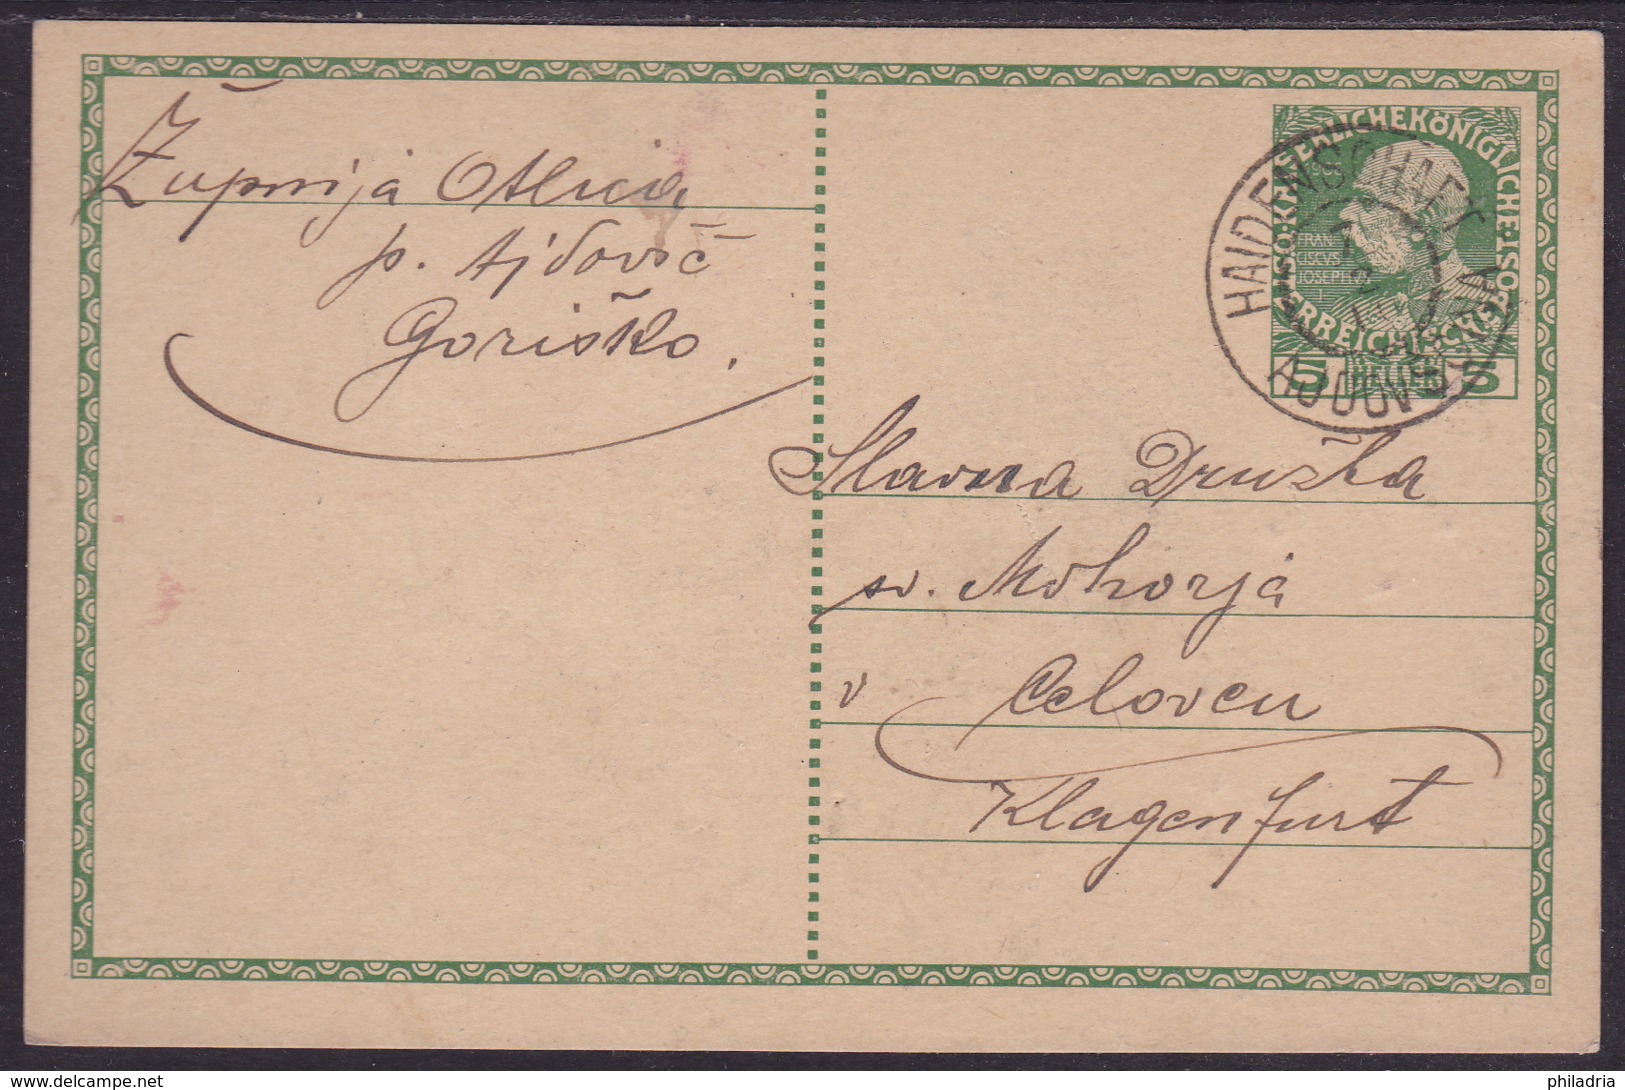 Župnija Otlica
p. Ajdovšč
Goriško.
KAISERLICHE KÖNIGLICHE ÖSTERREICHISCHE
FRAN
CISCVS
IOSEPH
I
5 HELLER 5
HAIDENSCHAFT
AJDOVŠČINA
Slavna Družba
sv. Mohorja
v Celovcu
Klagenfurt
delcampe.net
philadria